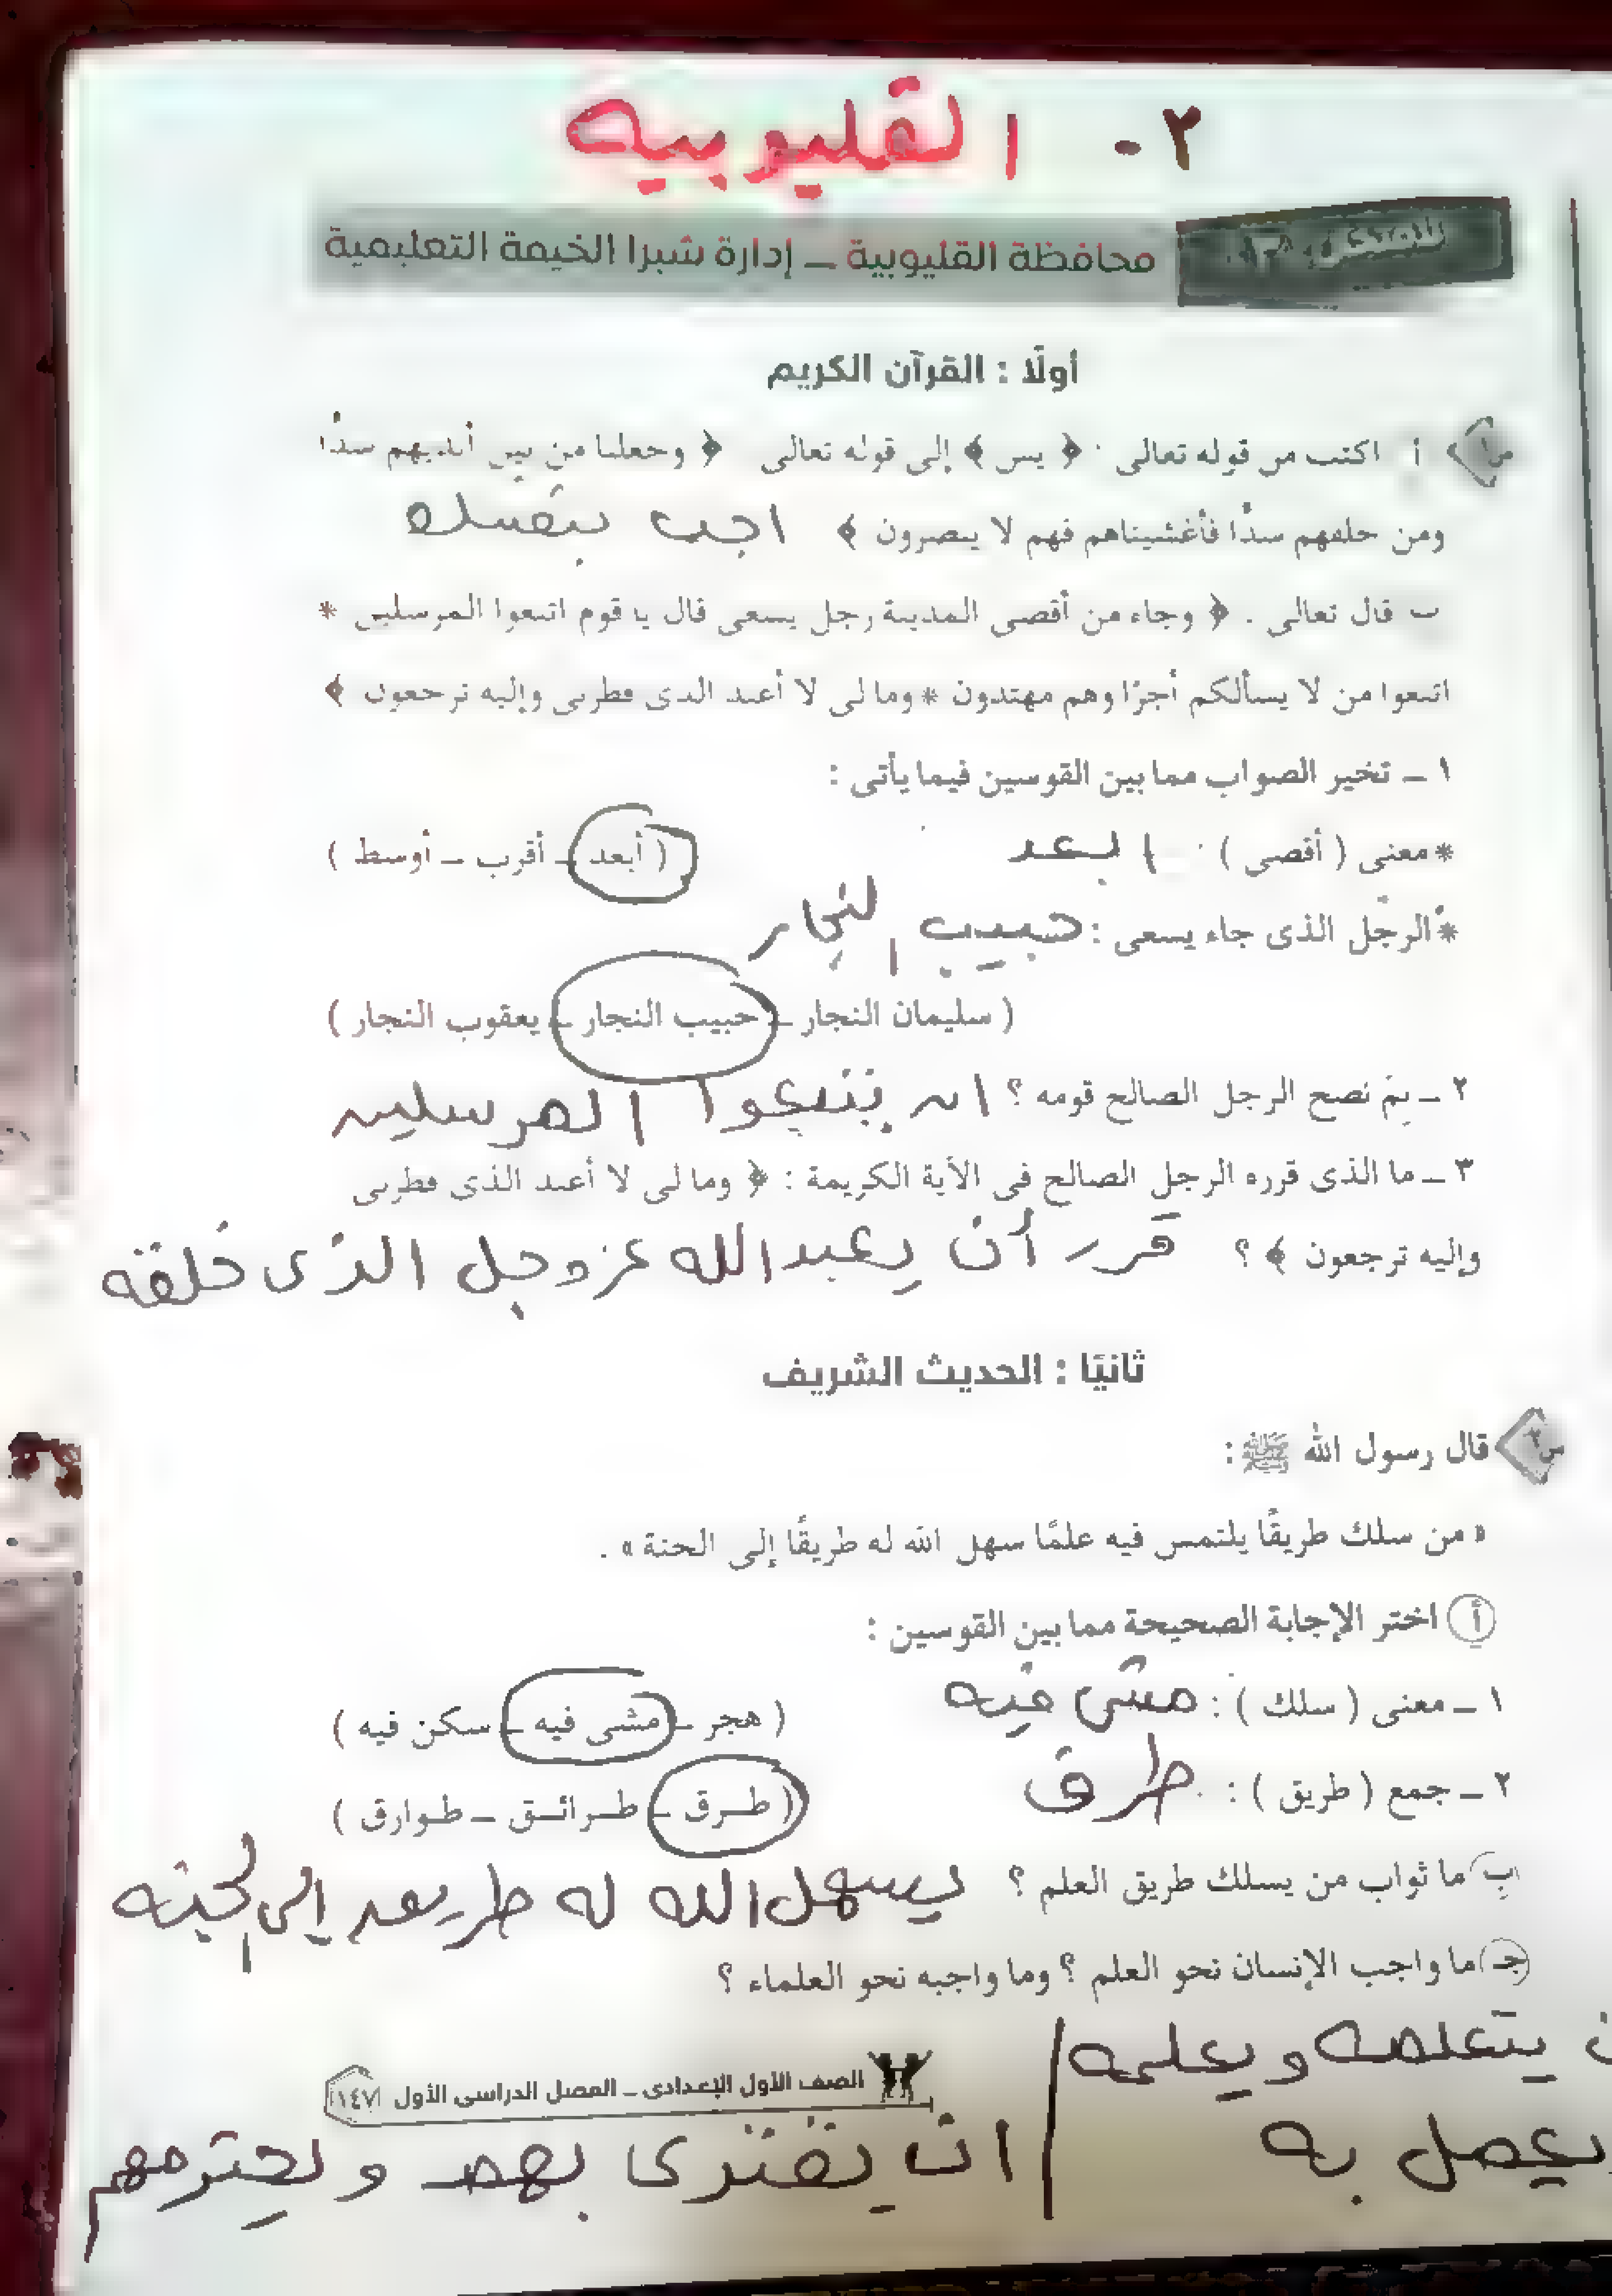 ٢ - القليوبيه
محافظة القليوبية – إدارة شبرا الخيمة التعليمية
أولًا : القرآن الكريم
س١ أ اكتب من قوله تعالى : ﴿ يس ﴾ إلى قوله تعالى ﴿ وجعلنا من بين أيديهم سدًا
ومن خلفهم سدًا فأغشيناهم فهم لا يبصرون ﴾ اجب بنفسك
ب قال تعالى : ﴿ وجاء من أقصى المدينة رجل يسعى قال يا قوم اتبعوا المرسلين *
اتبعوا من لا يسألكم أجرًا وهم مهتدون * وما لى لا أعبد الذى فطرنى وإليه ترجعون ﴾
١ – تخير الصواب مما بين القوسين فيما يأتى :
* معنى ( أقصى ) : ابعد ( أبعد – أقرب – أوسط )
* الرجل الذى جاء يسعى : حبيب النجار
( سليمان النجار – حبيب النجار – يعقوب النجار )
٢ – بم نصح الرجل الصالح قومه ؟ ان يتبعوا المرسلين
٣ – ما الذى قرره الرجل الصالح فى الآية الكريمة : ﴿ وما لى لا أعبد الذى فطرنى
وإليه ترجعون ﴾ ؟ قرر أن يعبد الله عز وجل الذى خلقه
ثانيًا : الحديث الشريف
س٢ قال رسول الله ﷺ :
« من سلك طريقًا يلتمس فيه علمًا سهل الله له طريقًا إلى الجنة » .
أ اختر الإجابة الصحيحة مما بين القوسين :
١ – معنى ( سلك ) : مشى فيه ( هجر – مشى فيه – سكن فيه )
٢ – جمع ( طريق ) : طرق ( طرق – طرائق – طوارق )
ب ما ثواب من يسلك طريق العلم ؟ يسهل الله له طريق إلى الجنه
جـ ما واجب الإنسان نحو العلم ؟ وما واجبه نحو العلماء ؟
يتعلمه ويعلمه
الصف الأول الإعدادى – الفصل الدراسى الأول ١٤٧
يعمل به / ان يقتدى بهم و يحترمهم